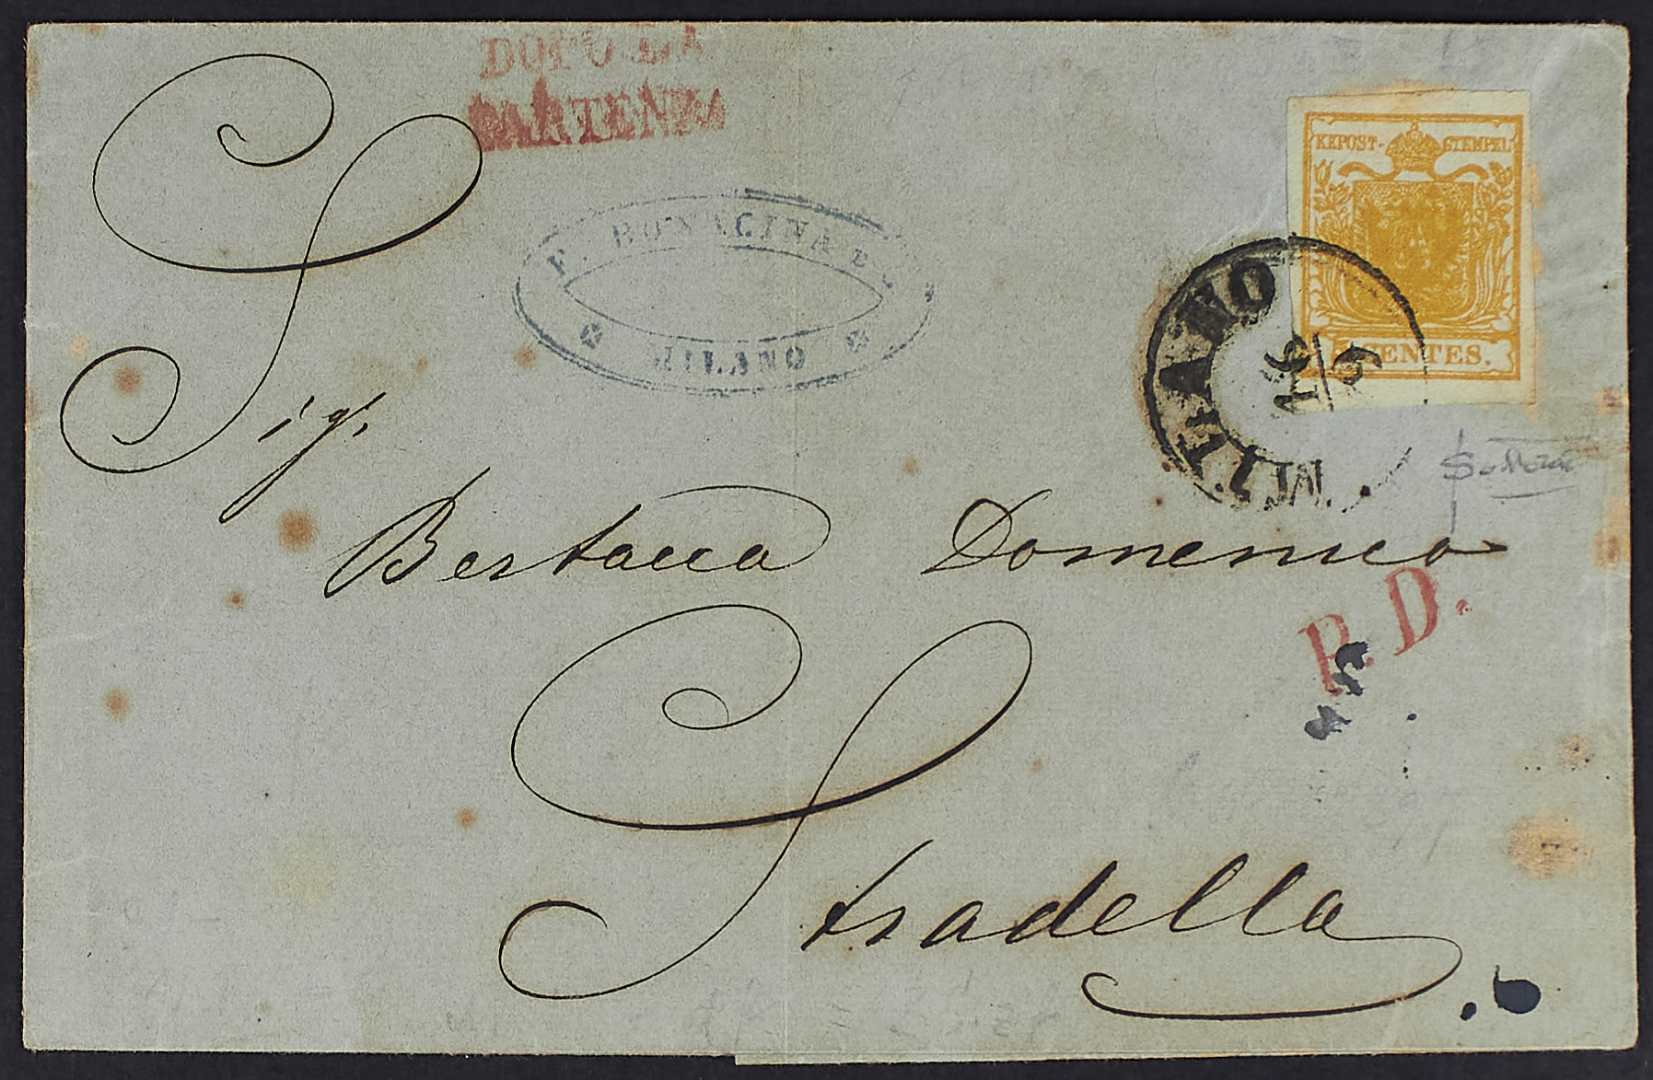 DOPO LA
PARTENZA
F. BONACINA E
MILANO
KKPOST-STEMPEL
CENTES.
MILANO
16
5
Sig.r
Bertacca Domenico
P.D.
Stradella